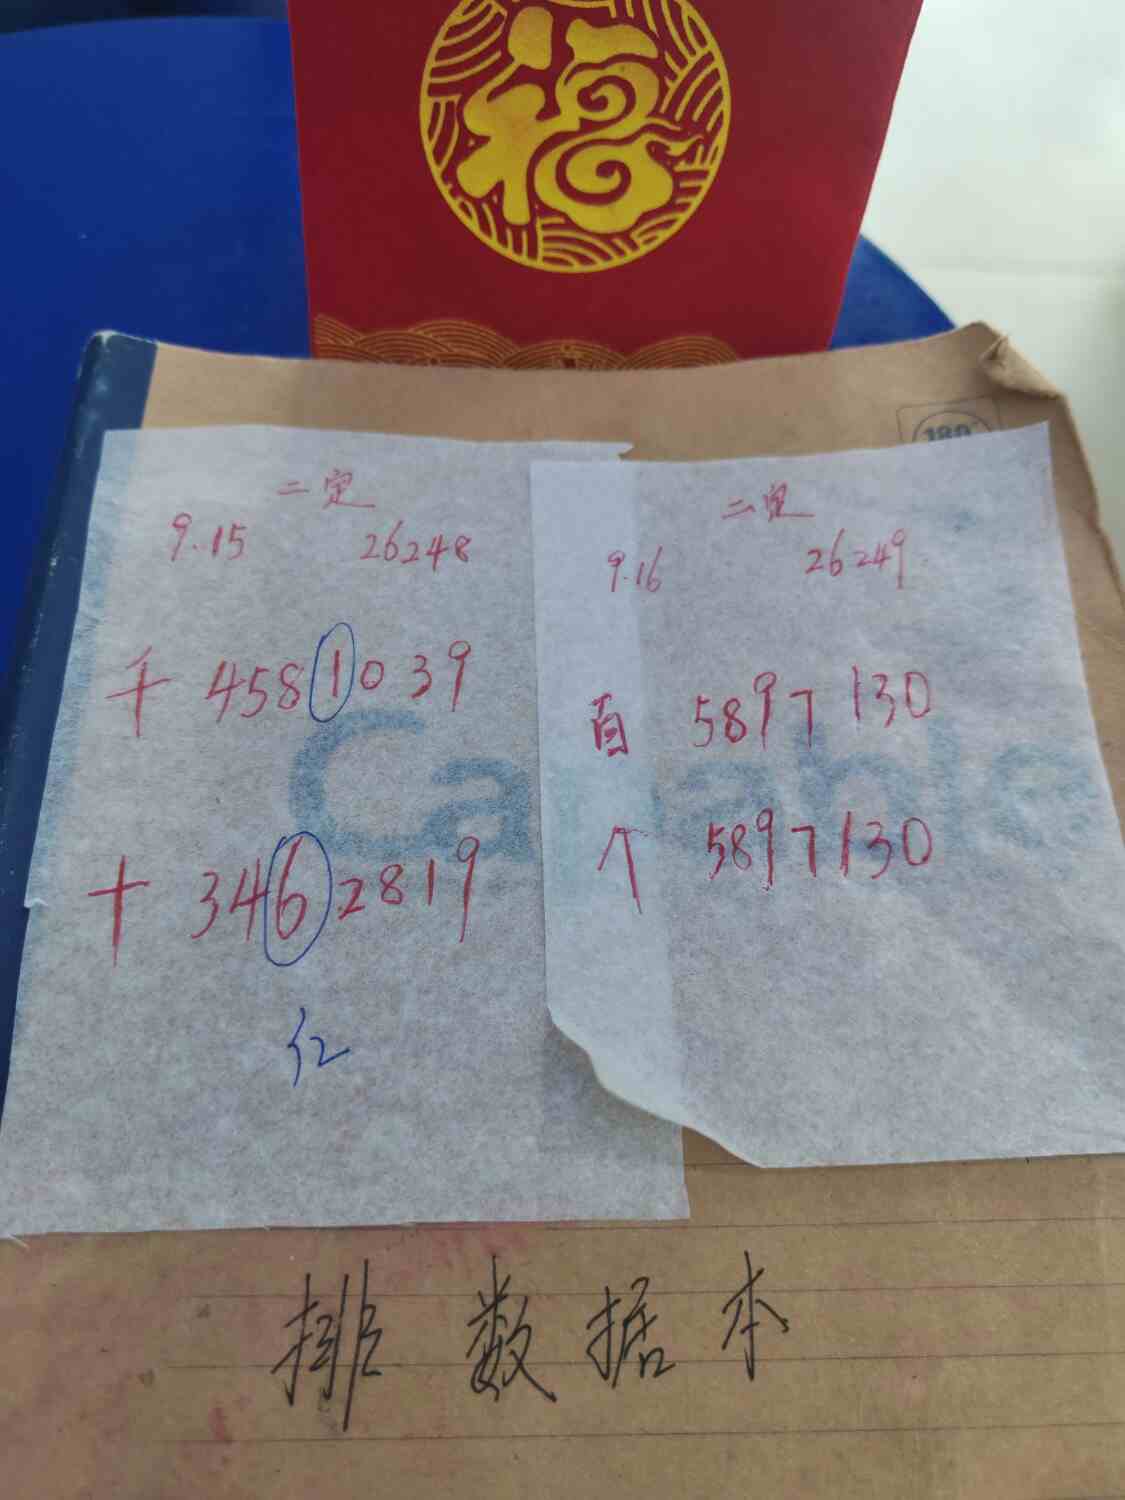 福
180°
二定
9.15 26248
千 4581039
十 3462819
红
二定
9.16 26249
百 5897130
个 5897130
Capable
排数据本